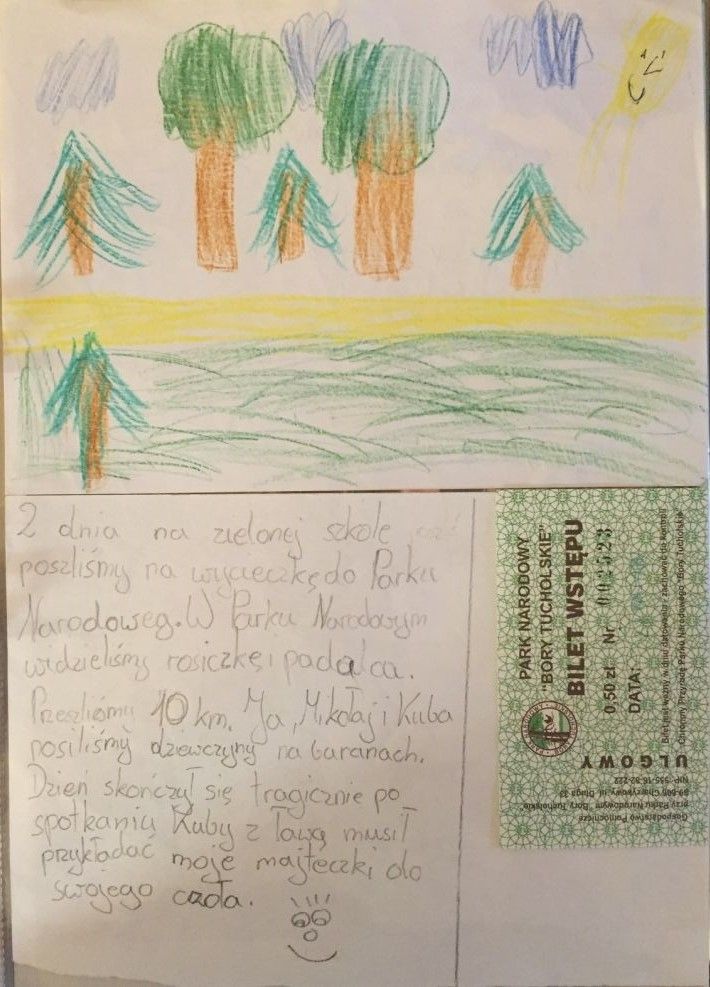 2 dnia na zielonej szkole
poszliśmy na wycieczkę do Parku
Narodoweg. W Parku Narodowym
widzieliśmy rosiczkę i padalca.
Przeszliśmy 10 km. Ja, Mikołaj i Kuba
nosiliśmy dziewczyny na baranach.
Dzień skończył się tragicznie po
spotkaniu Kuby z ławą musił
przykładać moje majteczki do
swojego czoła.
PARK NARODOWY
"BORY TUCHOLSKIE"
BILET WSTĘPU
0,50 zł Nr 002523
DATA:
Bilet jest ważny w dniu datowania - zachować do kontroli
Chronimy Przyrodę Parku Narodowego "Bory Tucholskie"
ULGOWY
Gospodarstwo Pomocnicze
przy Parku Narodowym "Bory Tucholskie"
89-606 Charzykowy, ul. Długa 33